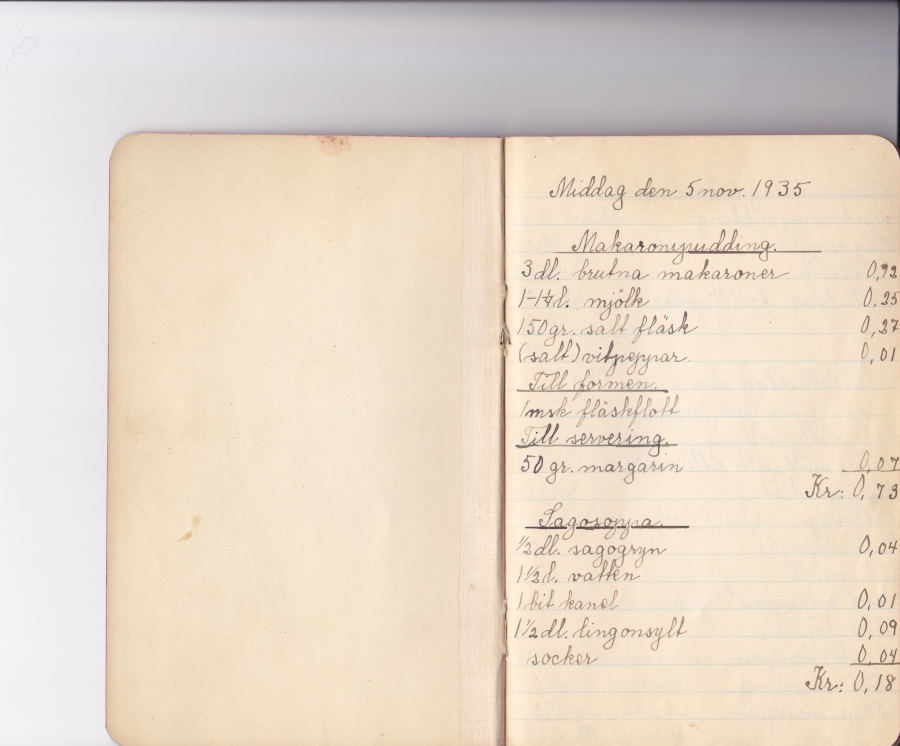 Middag den 5 nov. 1935
Makaronipudding.
3 dl. brutna makaroner 0,13
1-1¼ l. mjölk 0,25
150 gr. salt fläsk 0,27
(salt) vitpeppar. 0,01
Till formen.
1 msk fläskflott
Till servering.
50 gr. margarin 0,07
Kr: 0,73
Sagosoppa.
½ dl. sagogryn 0,04
1½ l. vatten
1 bit kanel 0,01
1½ dl. lingonsylt 0,09
socker 0,04
Kr: 0,18